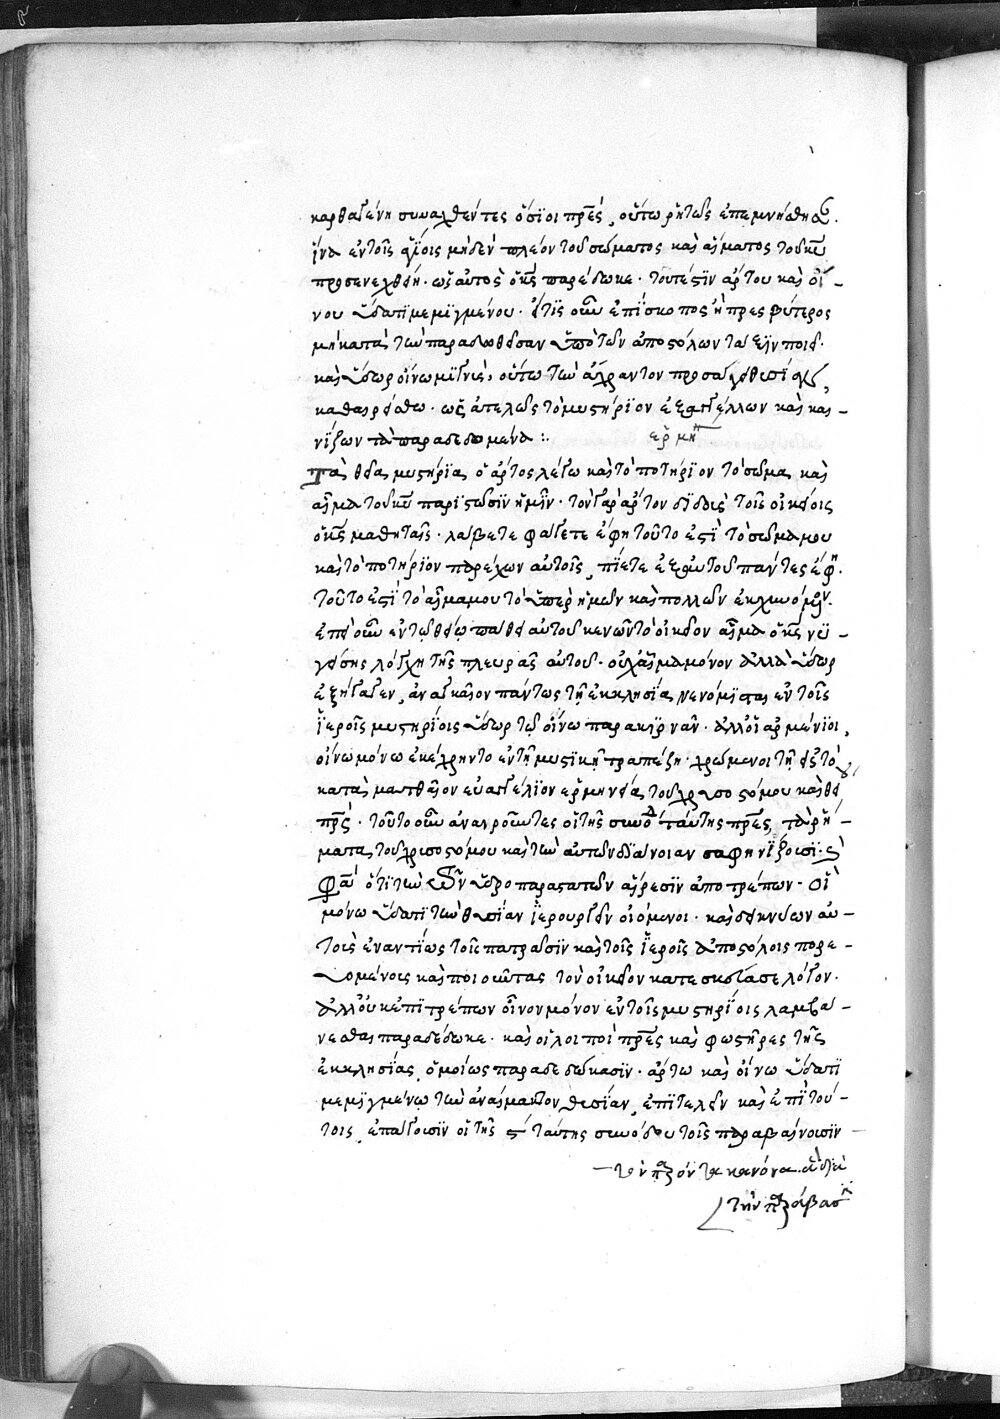 καρθαγένη συναχθέντες ὅσιοι πρές, οὕτω ῥητῶς ἐπεμνήσθησ.
ἵνα ἐν τοῖς ἁγίοις μηδὲν πλέον τοῦ σώματος καὶ αἵματος τοῦ κυ
προσενεχθείη. ὡς αὐτὸς ὁ κς παρέδωκε. τουτέστιν ἄρτου καὶ οἴ-
νου ὕδατι μεμιγμένου. εἴ τις οὖν ἐπίσκοπος ἢ πρεσβύτερος
μὴ κατὰ τὴν παραδοθεῖσαν ὑπὸ τῶν ἀποστόλων τάξιν ποιεῖ.
καὶ ὕδωρ οἴνω μιγνὺς, οὕτω τὴν ἄχραντον προσάγει θυσίαν,
καθαιρείσθω. ὡς ἀτελῶς τὸ μυστήριον ἐξαγγέλλων καὶ και-
νίζων τὰ παραδεδομένα :.
ἑρμη
Τὰ θεῖα μυστήρια ὁ ἄρτος λέγω καὶ τὸ ποτήριον τὸ σῶμα καὶ
αἷμα τοῦ κυ παριστῶσιν ἡμῖν. τὸν γὰρ ἄρτον διδοὺς τοῖς οἰκείοις
ὁ κς μαθηταῖς. λάβετε φάγετε ἔφη τοῦτό ἐστι τὸ σῶμά μου
καὶ τὸ ποτήριον παρέχων αὐτοῖς, πίετε ἐξ αὐτοῦ πάντες ἔφη.
τοῦτό ἐστι τὸ αἷμά μου τὸ ὑπὲρ ἡμῶν καὶ πολλῶν ἐκχυνόμενον.
ἐπεὶ οὖν ἐν τῷ θείῳ πάθει αὐτοῦ κενῶν τὸ οἰκεῖον αἷμα ὁ κς νυ-
γείσης λόγχη τῆς πλευρᾶς αὐτοῦ. οὐχ αἷμα μόνον ἀλλὰ ὕδωρ
ἐξήγαγεν, ἀναγκαῖον πάντως τῇ ἐκκλησίᾳ νενόμισται ἐν τοῖς
ἱεροῖς μυστηρίοις ὕδωρ τῷ οἴνω παρακιρνᾶν. ἀλλ' οἱ ἀρμένιοι,
οἴνω μόνω ἐκέχρηντο ἐν τῇ μυστικῇ τραπέζῃ. χρώμενοι τῇ εἰς τὸ
κατὰ ματθαῖον εὐαγγέλιον ἑρμηνείᾳ τοῦ χρυσοστόμου καὶ θείου
πρς. τοῦτο οὖν ἀναιροῦντες οἱ τῆς συνόδ ταύτης πρές, τὰ ῥή-
ματα τοῦ χρυσοστόμου καὶ τὴν αὐτῶν διάνοιαν σαφηνίζουσι. καὶ
φασιν ὅτι τὴν τῶν ὑδροπαραστατῶν αἵρεσιν ἀποτρέπων. οἱ
μόνω ὕδατι τὴν θυσίαν ἱερουργεῖν οἰόμενοι. καὶ δεικνύων αὐ-
τοὺς ἐναντίως τοῖς πατράσιν καὶ τοῖς ἱεροῖς ἀποστόλοις πορευ-
ομένους καὶ ποιοῦντας τὸν οἰκεῖον κατεσκεύασε λόγον.
ἀλλ' οὐκ ἐπιτρέπων οἶνον μόνον ἐν τοῖς μυστηρίοις λαμβά-
νεσθαι παραδέδωκε. καὶ οἱ λοιποὶ πρές καὶ φωστῆρες τῆς
ἐκκλησίας, ὁμοίως παραδεδώκασιν. ἄρτω καὶ οἴνω ὕδατι
μεμιγμένω τὴν ἀναίμακτον θυσίαν, ἐπιτελεῖν καὶ ἐπὶ τού-
τοις, ἐπάγουσιν οἱ τῆς ς ταύτης συνόδου τοῖς παραβαίνουσιν
τὸν παρόντα κανόνα